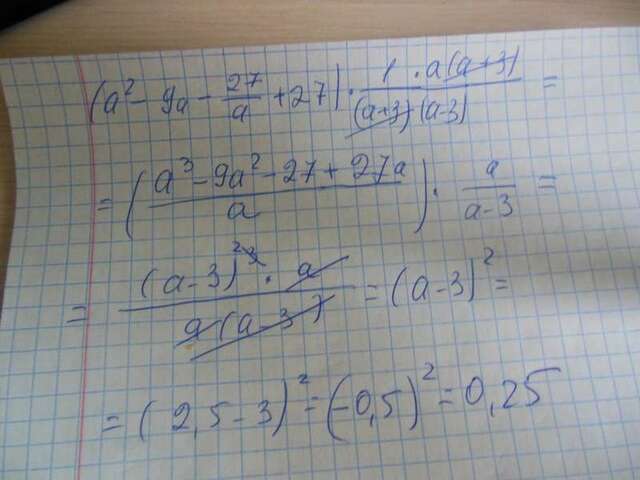 (a² - 9a - 27/a + 27) · 1 · a(a+3) / (a+3)(a-3) =
= (a³ - 9a² - 27 + 27a / a) · a / a-3 =
= (a-3)²³ · a / a(a-3) = (a-3)² =
= (2,5-3)² = (-0,5)² = 0,25